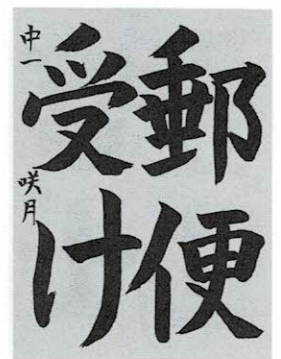 郵便
受け
中一 咲月